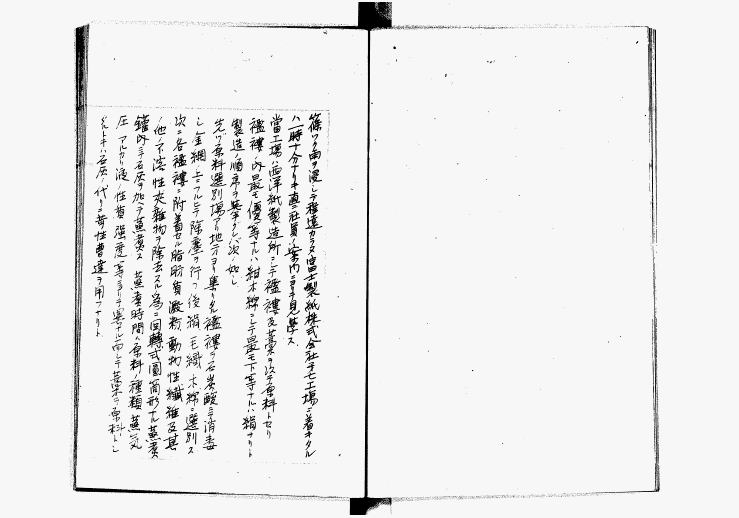 篠ツク雨ヲ浸シテ程遠カラヌ富士製紙株式会社第七工場ニ着キタル
ハ一時十分ナリキ直ニ社員ノ案内ニヨリ見学ス
當工場ハ西洋紙製造所ニシテ襤褸及藁ヲ以テ原料トセリ
襤褸ノ内最モ優等ナルハ紺木綿ニシテ最モ下等ナルハ絹ナリト
製造ノ順序ヲ挙グレバ次ノ如シ
先ヅ原料選別場アリ地方ヨリ集リタル襤褸ヲ石炭酸ニテ消毒
シ金網ノ上ニフルヒテ除塵ヲ行フ後絹毛織木綿ニ選別ス
次ニ各襤褸ニ附着セル脂肪質澱粉動物性繊維及其
ノ他ノ不溶性夾雑物ヲ除去スル為ニ回転式円筒形ナル蒸煮
鑵内ニテ石灰ヲ加ヘテ蒸煮ス 蒸煮時間ハ原料ノ種類蒸気
圧アルカリ液ノ性質強度等ニヨリテ異ナル而シテ藁ヲ原料トシ
タルトキハ石灰ノ代リニ苛性曹達ヲ用フナリト